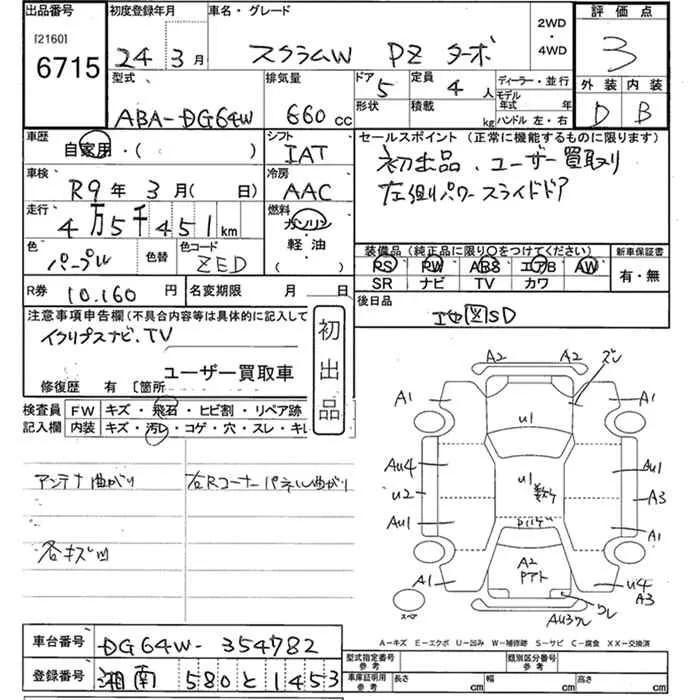 出品番号 初度登録年月 車名・グレード 2WD・4WD 評価点
[2160]
6715 24年3月 スクラムW PZ ターボ 3
型式 排気量 ドア 定員 ディーラー・並行 外装 内装
ABA-DG64W 660cc 5 4人 モデル年式 年 D B
形状 積載 kg ハンドル 左・右
車歴 シフト セールスポイント (正常に機能するものに限ります)
自家用・( ) IAT 初出品、ユーザー買取り
車検 冷房 左側パワースライドドア
R9年3月( 日) AAC
走行 燃料
4万5千451km ガソリン・軽油・( )
色 色替 色コード 装備品 (純正品に限り○をつけてください) 新車保証書
パープル ZED RS・PW・ABS・エアB・AW 有・無
SR ナビ TV カワ
R券 10,160円 名変期限 月 日 後日品
注意事項申告欄(不具合内容等は具体的に記入して 初出品 地図SD
イクリプスナビ、TV
ユーザー買取車
修復歴 有 〔箇所
検査員 FW キズ・飛石・ヒビ割・リペア跡
記入欄 内装 キズ・汚レ・コゲ・穴・スレ・キレ
アンテナ曲がり 右Rコーナーパネル曲がり
各キズ凹
A2 A2 ズレ
A1 U1 A1
Au4 U1 Au1
U2 A3
Au1 A1
A1 A2 U4
Pアト A3
スペア Au3 ワレ ワレ
A-キズ E-エクボ U-凹み W-補修跡 S-サビ C-腐食 XX-交換済
車台番号 DG64W-354782 型式指定番号 参考 類別区分番号 参考
登録番号 湘南 580 と 1453 車庫証明用 参考 長さ cm 幅 cm 高さ cm